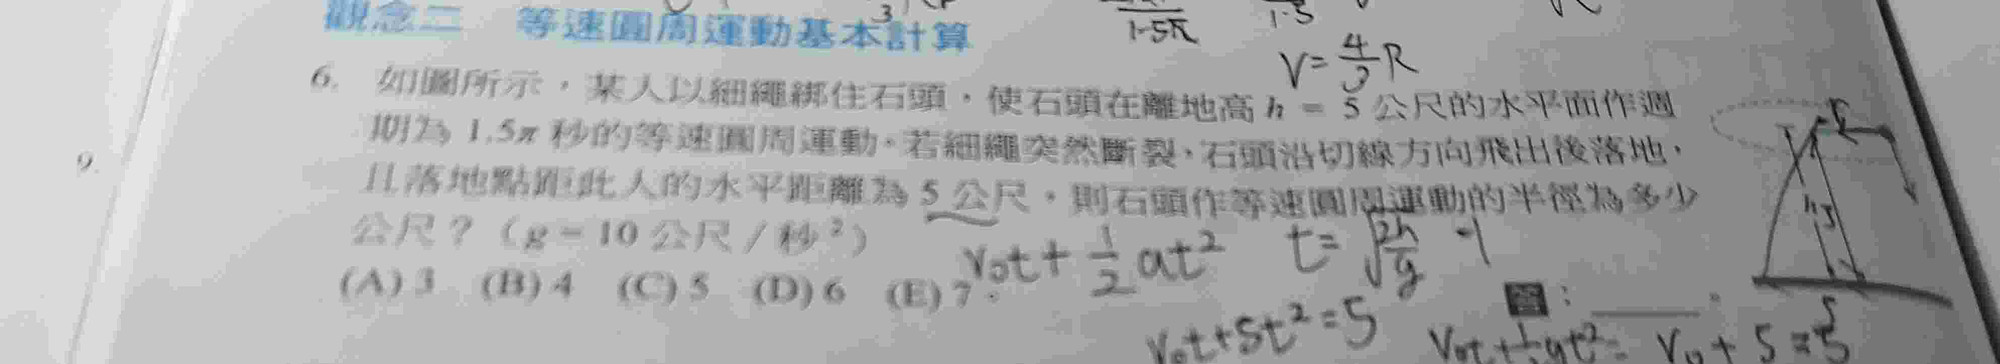 觀念二 等速圓周運動基本計算
1.5π
1.5
V=4/3R
6. 如圖所示，某人以細繩綁住石頭，使石頭在離地高 h = 5 公尺的水平面作週
期為 1.5π 秒的等速圓周運動。若細繩突然斷裂，石頭沿切線方向飛出後落地，
且落地點距此人的水平距離為 5 公尺，則石頭作等速圓周運動的半徑為多少
公尺？（g = 10 公尺／秒²）
(A) 3 (B) 4 (C) 5 (D) 6 (E) 7。
9.
V₀t+1/2at² t=√(2h/g) =1
V₀t+5t²=5
R
h
5
5
圖：
V₀+5=5